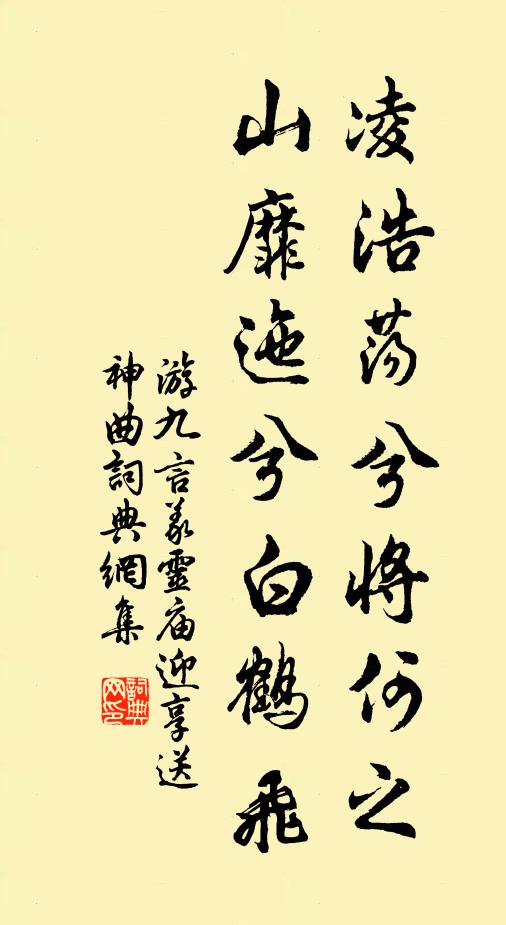 凌浩荡兮將何之
山靡迤兮白鶴飛
游九言義靈庙迎享送
神曲詞典網集
詞典
网印